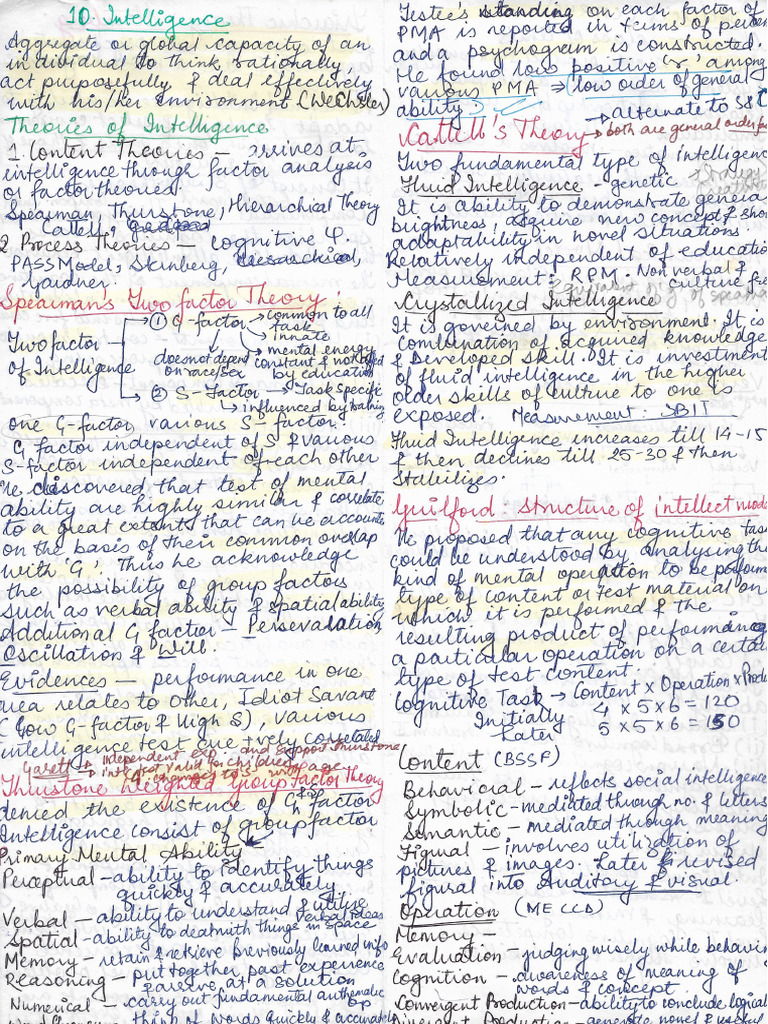 10. Intelligence
Aggregate or global capacity of an
individual to think rationally,
act purposefully & deal effectively
with his/her environment (Wechsler)
Theories of Intelligence
1. Content Theories — arrives at
intelligence through factor analysis
or factor theories.
Spearman, Thurstone, Hierarchical Theory
Cattell,
2. Process Theories — cognitive φ.
PASS Model, Sternberg,
Gardner.
Spearman's Two factor Theory:
Two factor
of Intelligence
① G-factor → common to all
task
→ innate
→ mental energy
constant & not
by education
does not depend
on race/sex
② S-Factor → Task specific
→ influenced by training
one G-factor various S-factor.
G factor independent of S & various
S-factor independent of each other
He discovered that test of mental
ability are highly similar & correlate
to a great extent that can be accounts
on the basis of their common overlap
with 'G'. Thus he acknowledge
the possibility of group factors
such as verbal ability & spatial ability
Additional G factor — Perseveration
Oscillation & Will.
Evidences — performance in one
area relates to other, Idiot Savant
(Low G-factor & High S), various
intelligence test are +vely correlated
Garett → independent exp. and support Thurstone
→ int. not valid for children
G changes to S with age
Thurstone Weighted Group factor Theory
denied the existence of G factor
Intelligence consist of group factor
Primary Mental Ability
Perceptual — ability to identify things
quickly & accurately.
Verbal — ability to understand & utilise
verbal ideas
Spatial — ability to deal with things in space
Memory — retain & retrieve previously learned info
Reasoning — put together past experience
& arrive at a solution
Numerical — carry out fundamental authematic
op
think of words quickly & accurately
Testee's standing on each factor of
PMA is reported in terms of percen
and a psychogram is constructed.
He found low positive 'r' among
various PMA ⇒ low order of general
ability
→ alternate to S&
Cattell's Theory → both are general order fa
Two fundamental type of intelligence
Fluid Intelligence - genetic
It is ability to demonstrate general
brightness, acquire new concept & show
adaptability in novel situations.
Relatively independent of education
Measurement: RPM. Non verbal &
culture free
Crystallized Intelligence
It is governed by environment. It is
combination of acquired knowledge
& Developed skill. It is investment
of fluid intelligence in the higher
older skills of culture to one is
exposed. Measurement: SBIT
Fluid Intelligence increases till 14-15
& then declines till 25-30 & then
stabilizes.
Guilford: Structure of intellect mode
He proposed that any cognitive task
could be understood by analysing the
kind of mental operation to be perform
type of content or test material on
which it is performed & the
resulting product of performing
a particular operation on a certain
type of test content.
Cognitive Task → Content x Operation x Produ
Initially 4 x 5 x 6 = 120
Later 5 x 5 x 6 = 150
Content (BSSF)
Behavioral — reflects social intelligence
Symbolic — mediated through no. & letters
Semantic — mediated through meaning
Figual — involves utilization of
pictures & images. Later revised
figural into Auditory & visual.
Operation (MECCD)
Memory —
Evaluation — judging wisely while behavin
Cognition — awareness of meaning of
words & concept.
Convergent Production — ability to conclude logical
Divergent Production — generate novel & useful